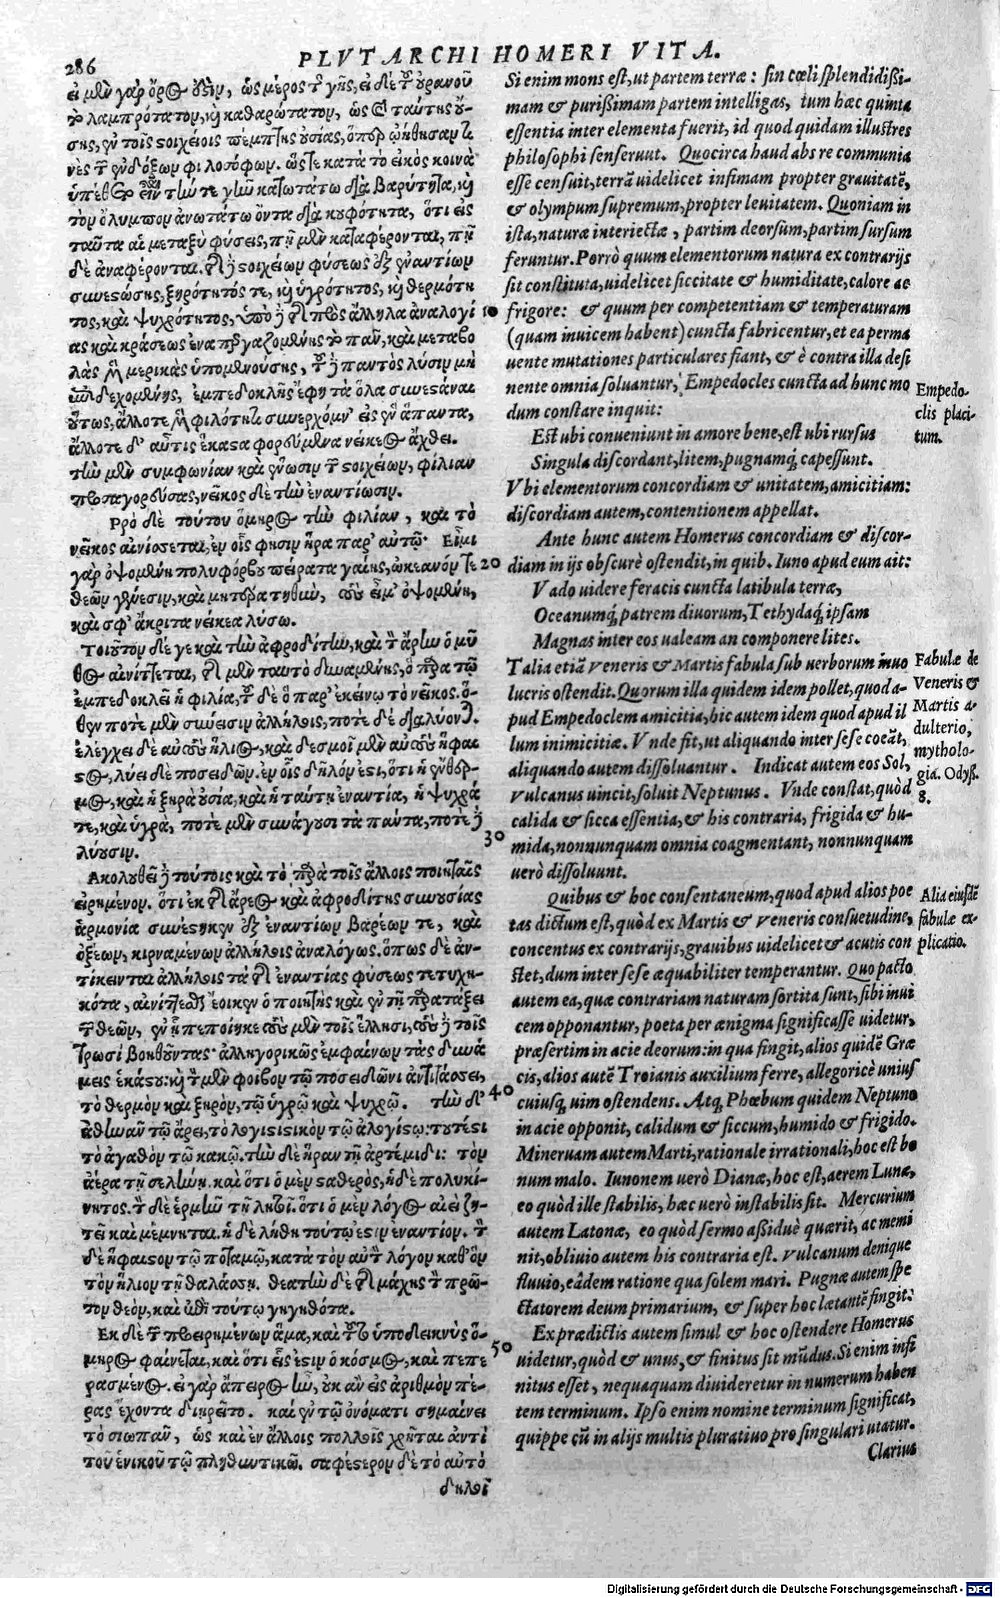 286
PLVTARCHI HOMERI VITA.
εἰ μὲν γὰρ ὄρος ἐστὶν, ὡς μέρος τῆς γῆς, εἰ δὲ τοῦ οὐρανοῦ
τὸ λαμπρότατον, καὶ καθαρώτατον, ὡς καὶ ταύτης οὔ-
σης, ἐν τοῖς στοιχείοις πέμπτης οὐσίας, ὅπερ ᾠήθησάν τι
νὲς τῶν ἐνδόξων φιλοσόφων. ὥστε κατὰ τὸ εἰκὸς κοινὰ
ὑπέθετο εἶναι τήν τε γῆν κατωτάτω διὰ βαρύτητα, καὶ
τὸν ὄλυμπον ἀνωτάτω ὄντα διὰ κουφότητα, ὅτι εἰς
ταῦτα αἱ μεταξὺ φύσεις, πῇ μὲν καταφέρονται, πῇ
δὲ ἀναφέρονται. τῶν δὲ στοιχείων φύσεως ἐξ ἐναντίων
συνεστώσης, ξηρότητός τε, καὶ ὑγρότητος, καὶ θερμότη
τος, καὶ ψυχρότητος, ὑπὸ δὲ τῶν πρὸς ἄλληλα ἀναλογί
ας καὶ κράσεως ἐναπεργαζομένης τὸ πᾶν, καὶ μεταβο
λὰς μὲν μερικὰς ὑπομενούσης, τοῦ δὲ παντὸς λύσιν μὴ
ἐπιδεχομένης, ἐμπεδοκλῆς ἔφη τὰ ὅλα συνεστάναι
οὕτως, ἄλλοτε μὲν φιλότητι συνερχόμεν' εἰς ἓν ἅπαντα,
ἄλλοτε δ' αὖτις ἕκαστα φορούμενα νείκεος ἄχθει.
τὴν μὲν συμφωνίαν καὶ ἕνωσιν τῶν στοιχείων, φιλίαν
προσαγορεύσας, νεῖκος δὲ τὴν ἐναντίωσιν.
Πρὸ δὲ τούτου ὅμηρος τὴν φιλίαν, καὶ τὸ
νεῖκος αἰνίσσεται, ἐν οἷς φησιν ἥρα παρ' αὐτῷ· Εἶμι
γὰρ ὀψομένη πολυφόρβου πείρατα γαίης, ὠκεανόν τε
θεῶν γένεσιν, καὶ μητέρα τηθὺν, τοὺς εἶμ' ὀψομένη,
καὶ σφ' ἄκριτα νείκεα λύσω.
Τοιοῦτον δέ γε καὶ τὴν ἀφροδίτην, καὶ τὸν ἄρην ὁ μῦ
θος αἰνίττεται, τῆς μὲν ταὐτὸ δυναμένης, ὃ παρὰ τῷ
ἐμπεδοκλεῖ ἡ φιλία, τοῦ δὲ ὃ παρ' ἐκείνῳ τὸ νεῖκος. ὅ-
θεν ποτὲ μὲν συνίεισιν ἀλλήλοις, ποτὲ δὲ διαλύονται.
ἐλέγχει δὲ αὐτοὺς ἥλιος, καὶ δεσμοῖ μὲν αὐτοὺς ἥφαι
στος, λύει δὲ ποσειδῶν. ἐν οἷς δῆλόν ἐστι, ὅτι ἡ ἔνθερ-
μος, καὶ ἡ ξηρὰ οὐσία, καὶ ἡ ταύτῃ ἐναντία, ἡ ψυχρά
τε, καὶ ὑγρὰ, ποτὲ μὲν συνάγουσι τὰ πάντα, ποτὲ δὲ
λύουσιν.
Ακολουθεῖ δὲ τούτοις καὶ τὸ παρὰ τοῖς ἄλλοις ποιηταῖς
εἰρημένον. ὅτι ἐκ τῆς ἄρεος καὶ ἀφροδίτης συνουσίας
ἁρμονία συνέστηκεν ἐξ ἐναντίων βαρέων τε, καὶ
ὀξέων, κιρναμένων ἀλλήλοις ἀναλόγως. ὅπως δὲ ἀν-
τίκεινται ἀλλήλοις τὰ τῆς ἐναντίας φύσεως τετυχη-
κότα, αἰνίττεσθαι ἔοικεν ὁ ποιητὴς καὶ ἐν τῇ παρατάξει
τῶν θεῶν, ἐν ᾗ πεποίηκε τοὺς μὲν τοῖς ἕλλησι, τοὺς δὲ τοῖς
τρωσὶ βοηθοῦντας· ἀλληγορικῶς ἐμφαίνων τὰς δυνά
μεις ἑκάστου· καὶ τὸν μὲν φοίβον τῷ ποσειδῶνι ἀντιτάσσει,
τὸ θερμὸν καὶ ξηρὸν, τῷ ὑγρῷ καὶ ψυχρῷ. τὴν δ'
ἀθηνᾶν τῷ ἄρει, τὸ λογιστικὸν τῷ ἀλογίστῳ: τουτέστι
τὸ ἀγαθὸν τῷ κακῷ. τὴν δὲ ἥραν τῇ ἀρτέμιδι: τὸν
ἀέρα τῇ σελήνῃ. καὶ ὅτι ὁ μὲν σταθερὸς, ἡ δὲ πολυκί-
νητος. τὸν δὲ ἑρμῆν τῇ λητοῖ. ὅτι ὁ μὲν λόγος αἰεὶ ζη-
τεῖ καὶ μέμνηται. ἡ δὲ λήθη τούτῳ ἐστὶν ἐναντίον. τὸν
δὲ ἥφαιστον τῷ ποταμῷ, κατὰ τὸν αὐτὸν λόγον καθ' ὃν
τὸν ἥλιον τῇ θαλάσσῃ. θεατὴν δὲ τῆς μάχης τὸν πρῶ-
τον θεὸν, καὶ ἐπὶ τούτῳ γηγηθότα.
Εκ δὲ τῶν προειρημένων ἅμα, καὶ τοῦτο ὑποδεικνὺς ὅ-
μηρος φαίνεται, καὶ ὅτι εἷς ἐστιν ὁ κόσμος, καὶ πεπε
ρασμένος. εἰ γὰρ ἄπειρος ἦν, οὐκ ἂν εἰς ἀριθμὸν πέ-
ρας ἔχοντα διῃρεῖτο. καὶ ἐν τῷ ὀνόματι σημαίνει
τὸ σιωπᾶν, ὡς καὶ ἐν ἄλλοις πολλοῖς χρῆται ἀντὶ
τοῦ ἑνικοῦ τῷ πληθυντικῷ. σαφέστερον δὲ τὸ αὐτὸ
δηλοῖ
10
20
30
40
50
Si enim mons est, ut partem terræ: sin cœli splendidissi-
mam & purissimam partem intelligas, tum hæc quinta
essentia inter elementa fuerit, id quod quidam illustres
philosophi senserunt. Quocirca haud abs re communia
esse censuit, terrā uidelicet infimam propter grauitatē,
& olympum supremum, propter leuitatem. Quoniam in
ista, naturæ interiectæ, partim deorsum, partim sursum
feruntur. Porrò quum elementorum natura ex contrarijs
sit constituta, uidelicet siccitate & humiditate, calore ac
frigore: & quum per competentiam & temperaturam
(quam inuicem habent) cuncta fabricentur, et ea perma
uente mutationes particulares fiant, & è contra illa desi
nente omnia soluantur, Empedocles cuncta ad hunc mo
dum constare inquit:
Est ubi conueniunt in amore bene, est ubi rursus
Singula discordant, litem, pugnamq; capessunt.
Vbi elementorum concordiam & unitatem, amicitiam:
discordiam autem, contentionem appellat.
Ante hunc autem Homerus concordiam & discor-
diam in ijs obscurè ostendit, in quib. Iuno apud eum ait:
Vado uidere feracis cuncta latibula terræ,
Oceanumq; patrem diuorum, Tethydaq; ipsam
Magnas inter eos ualeam an componere lites.
Talia etiā Veneris & Martis fabula sub uerborum inuo
lucris ostendit. Quorum illa quidem idem pollet, quod a-
pud Empedoclem amicitia, hic autem idem quod apud il
lum inimicitiæ. Vnde fit, ut aliquando inter sese coeāt,
aliquando autem dissoluantur. Indicat autem eos Sol,
Vulcanus uincit, soluit Neptunus. Vnde constat, quòd
calida & sicca essentia, & his contraria, frigida & hu-
mida, nonnunquam omnia coagmentant, nonnunquam
uerò dissoluunt.
Quibus & hoc consentaneum, quod apud alios poe
tas dictum est, quòd ex Martis & Veneris consuetudine,
concentus ex contrarijs, grauibus uidelicet & acutis con
stet, dum inter sese æquabiliter temperantur. Quo pacto
autem ea, quæ contrariam naturam sortita sunt, sibi inui
cem opponantur, poeta per ænigma significasse uidetur,
præsertim in acie deorum: in qua fingit, alios quidē Græ
cis, alios autē Troianis auxilium ferre, allegoricè unius
cuiusq; uim ostendens. Atq; Phœbum quidem Neptuno
in acie opponit, calidum & siccum, humido & frigido.
Mineruam autem Marti, rationale irrationali, hoc est bo
num malo. Iunonem uerò Dianæ, hoc est, aerem Lunæ,
eo quòd ille stabilis, hæc uerò instabilis sit. Mercurium
autem Latonæ, eo quòd sermo assiduè quærit, ac memi
nit, obliuio autem his contraria est. Vulcanum denique
fluuio, eâdem ratione qua solem mari. Pugnæ autem spe
ctatorem deum primarium, & super hoc lætantē fingit:
Ex prædictis autem simul & hoc ostendere Homerus
uidetur, quòd & unus, & finitus sit mūdus. Si enim infi
nitus esset, nequaquam diuideretur in numerum haben
tem terminum. Ipso enim nomine terminum significat,
quippe cū in alijs multis pluratiuo pro singulari utatur.
Clarius
Empedo-
clis placi-
tum.
Fabulæ de
Veneris &
Martis a-
dulterio,
mytholo-
gia. Odyß.
8.
Alia eiusdē
fabulæ ex-
plicatio.
Digitalisierung gefördert durch die Deutsche Forschungsgemeinschaft - DFG